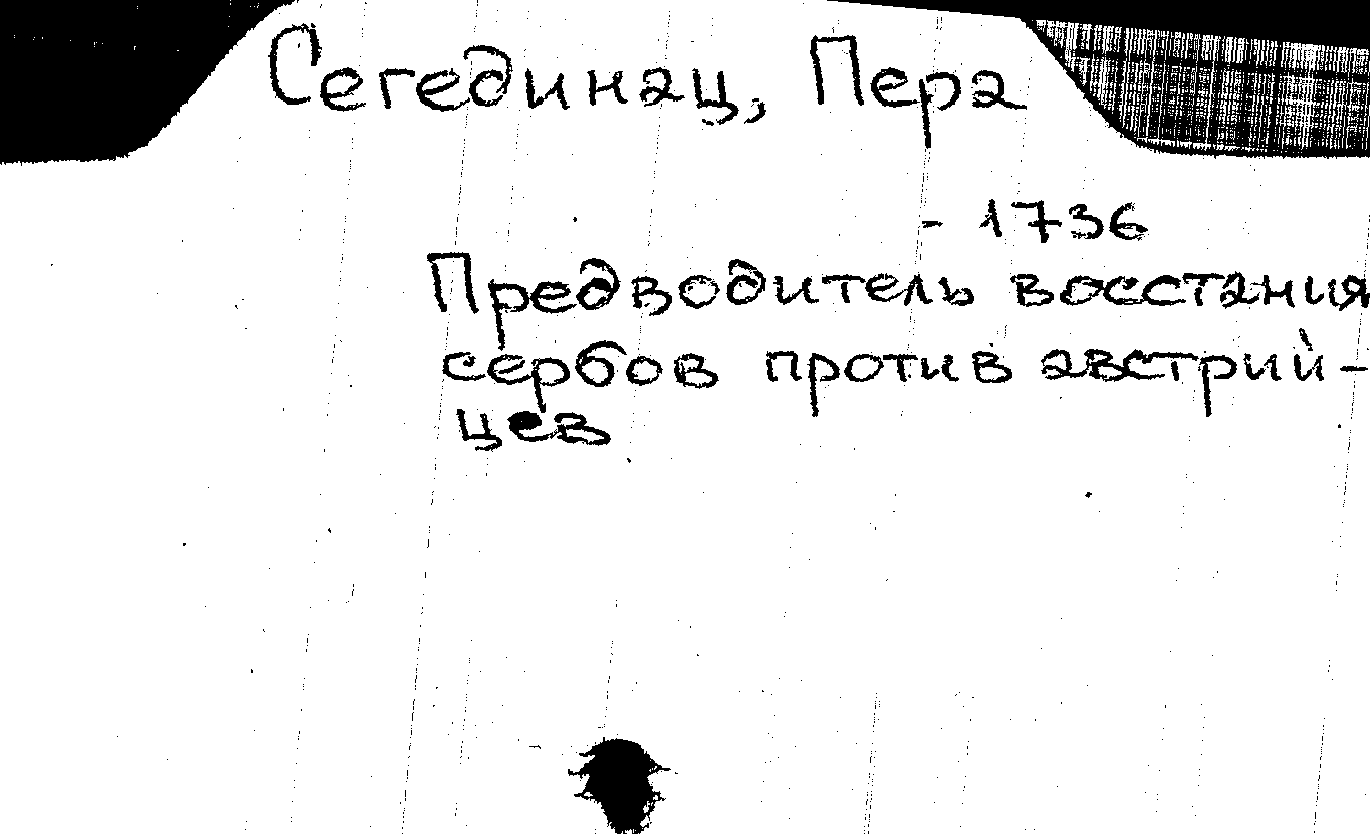 Сегединац, Пера
- 1736
Предводитель восстания
сербов против австрий-
цев